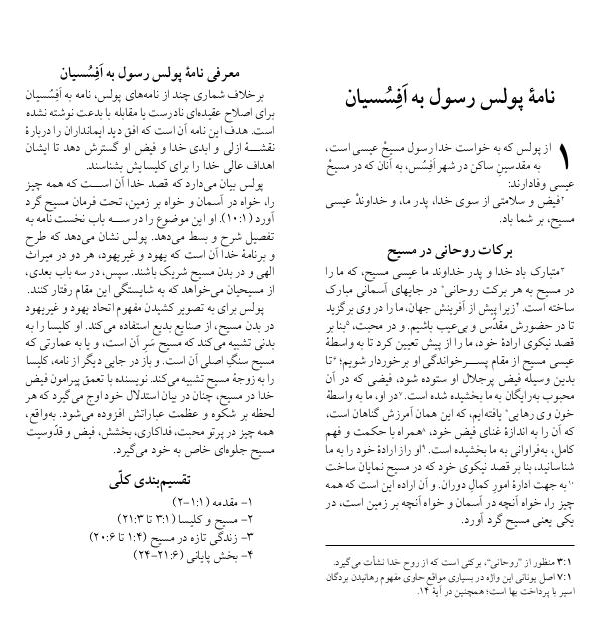 نامهٔ پولس رسول به اَفِسُسیان
۱ از پولس که به خواست خدا رسول مسیحْ عیسی است،
به مقدسینِ ساکن در شهر اَفِسُس، به آنان که در مسیحْ
عیسی وفادارند:
۲فیض و سلامتی از سوی خدا، پدر ما، و خداوندْ عیسی
مسیح، بر شما باد.
برکات روحانی در مسیح
۳متبارک باد خدا و پدر خداوند ما عیسی مسیح، که ما را
در مسیح به هر برکت روحانی* در جایهای آسمانی مبارک
ساخته است. ۴زیرا پیش از آفرینش جهان، ما را در وی برگزید
تا در حضورش مقدّس و بی‌عیب باشیم. و در محبت، ۵بنا بر
قصد نیکوی ارادهٔ خود، ما را از پیش تعیین کرد تا به واسطهٔ
عیسی مسیح از مقام پسرخواندگی او برخوردار شویم؛ ۶تا
بدین وسیله فیض پرجلال او ستوده شود، فیضی که در آن
محبوب به‌رایگان به ما بخشیده شده است. ۷در او، ما به واسطهٔ
خون وی رهایی* یافته‌ایم، که این همان آمرزش گناهان است،
که آن را به اندازهٔ غنای فیض خود، ۸همراه با حکمت و فهم
کامل، به‌فراوانی به ما بخشیده است. ۹او راز ارادهٔ خود را به ما
شناسانید، بنا بر قصد نیکوی خود که در مسیح نمایان ساخت
۱۰به جهت ادارهٔ امورِ کمالِ دوران. و آن اراده این است که همه
چیز را، خواه آنچه در آسمان و خواه آنچه بر زمین است، در
یکی یعنی مسیح گرد آوَرد.
۳:۱ منظور از ”روحانی“، برکتی است که از روح خدا نشأت می‌گیرد.
۷:۱ اصل یونانی این واژه در بسیاری مواقع حاوی مفهوم رهانیدن بردگان
اسیر با پرداخت بها است؛ همچنین در آیهٔ ۱۴.
معرفی نامهٔ پولس رسول به اَفِسُسیان
برخلاف شماری چند از نامه‌های پولس، نامه به اَفِسُسیان
برای اصلاح عقیده‌ای نادرست یا مقابله با بدعت نوشته نشده
است. هدف این نامه آن است که افق دید ایمانداران را دربارهٔ
نقشهٔ ازلی و ابدی خدا و فیض او گسترش دهد تا ایشان
اهداف عالی خدا را برای کلیسایش بشناسند.
پولس بیان می‌دارد که قصد خدا آن است که همه چیز
را، خواه در آسمان و خواه بر زمین، تحت فرمان مسیح گرد
آورد (۱۰:۱). او این موضوع را در سه باب نخست نامه به
تفصیل شرح و بسط می‌دهد. پولس نشان می‌دهد که طرح
و برنامهٔ خدا آن است که یهود و غیریهود، هر دو در میراث
الهی و در بدن مسیح شریک باشند. سپس، در سه باب بعدی،
از مسیحیان می‌خواهد که به شایستگی این مقام رفتار کنند.
پولس برای به تصویر کشیدن مفهوم اتحاد یهود و غیریهود
در بدن مسیح، از صنایع بدیع استفاده می‌کند. او کلیسا را به
بدنی تشبیه می‌کند که مسیح سَرِ آن است، و یا به عمارتی که
مسیح سنگِ اصلی آن است. و باز در جایی دیگر از نامه، کلیسا
را به زوجهٔ مسیح تشبیه می‌کند. نویسنده با تعمق پیرامون فیض
خدا در مسیح، چنان در بیان استدلال خود اوج می‌گیرد که هر
لحظه بر شکوه و عظمت عباراتش افزوده می‌شود. به‌واقع،
همه چیز در پرتو محبت، فداکاری، بخشش، فیض و قدّوسیت
مسیح جلوه‌ای خاص به خود می‌گیرد.
تقسیم‌بندی کلّی
۱- مقدمه (۱:۱-۲)
۲- مسیح و کلیسا (۳:۱ تا ۲۱:۳)
۳- زندگی تازه در مسیح (۱:۴ تا ۲۰:۶)
۴- بخش پایانی (۲۱:۶-۲۴)